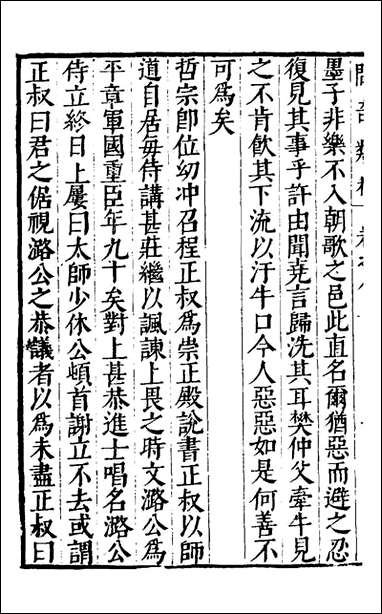 墨子非樂不入朝歌之邑此直名爾猶惡而避之忍
復見其事乎許由聞堯言歸洗其耳樊仲父牽牛見
之不肯飲其下流以汙牛口今人惡惡如是何善不
可為矣
哲宗卽位幼冲召程正叔為崇正殿說書正叔以師
道自居毎侍講甚莊繼以諷諫上畏之時文潞公為
平章軍國重臣年九十矣對上甚恭進士唱名潞公
侍立終日上屢曰太師少休公頓首謝立不去或謂
正叔曰君之倨視潞公之恭議者以為未盡正叔曰